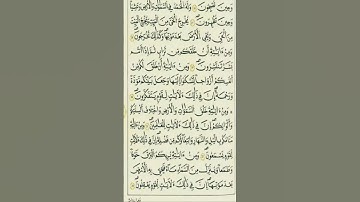 وَحِينَ تُصْبِحُونَ ۝ وَلَهُ الْحَمْدُ فِي السَّمَٰوَٰتِ وَالْأَرْضِ وَعَشِيًّا
وَحِينَ تُظْهِرُونَ ۝ يُخْرِجُ الْحَيَّ مِنَ الْمَيِّتِ وَيُخْرِجُ الْمَيِّتَ
مِنَ الْحَيِّ وَيُحْيِ الْأَرْضَ بَعْدَ مَوْتِهَا وَكَذَٰلِكَ تُخْرَجُونَ ۝
وَمِنْ ءَايَٰتِهِ أَنْ خَلَقَكُم مِّن تُرَابٍ ثُمَّ إِذَا أَنتُم
بَشَرٌ تَنتَشِرُونَ ۝ وَمِنْ ءَايَٰتِهِ أَنْ خَلَقَ لَكُم مِّنْ
أَنفُسِكُمْ أَزْوَٰجًا لِّتَسْكُنُوا إِلَيْهَا وَجَعَلَ بَيْنَكُم مَّوَدَّةً
وَرَحْمَةً إِنَّ فِي ذَٰلِكَ لَءَايَٰتٍ لِّقَوْمٍ يَتَفَكَّرُونَ ۝
وَمِنْ ءَايَٰتِهِ خَلْقُ السَّمَٰوَٰتِ وَالْأَرْضِ وَاخْتِلَٰفُ أَلْسِنَتِكُمْ
وَأَلْوَٰنِكُمْ إِنَّ فِي ذَٰلِكَ لَءَايَٰتٍ لِّلْعَٰلِمِينَ ۝ وَمِنْ ءَايَٰتِهِ
مَنَامُكُم بِاللَّيْلِ وَالنَّهَارِ وَابْتِغَاؤُكُم مِّن فَضْلِهِ إِنَّ فِي ذَٰلِكَ لَءَايَٰتٍ
لِّقَوْمٍ يَسْمَعُونَ ۝ وَمِنْ ءَايَٰتِهِ يُرِيكُمُ الْبَرْقَ خَوْفًا
وَطَمَعًا وَيُنَزِّلُ مِنَ السَّمَاءِ مَاءً فَيُحْيِ بِهِ الْأَرْضَ
بَعْدَ مَوْتِهَا إِنَّ فِي ذَٰلِكَ لَءَايَٰتٍ لِّقَوْمٍ يَعْقِلُونَ ۝